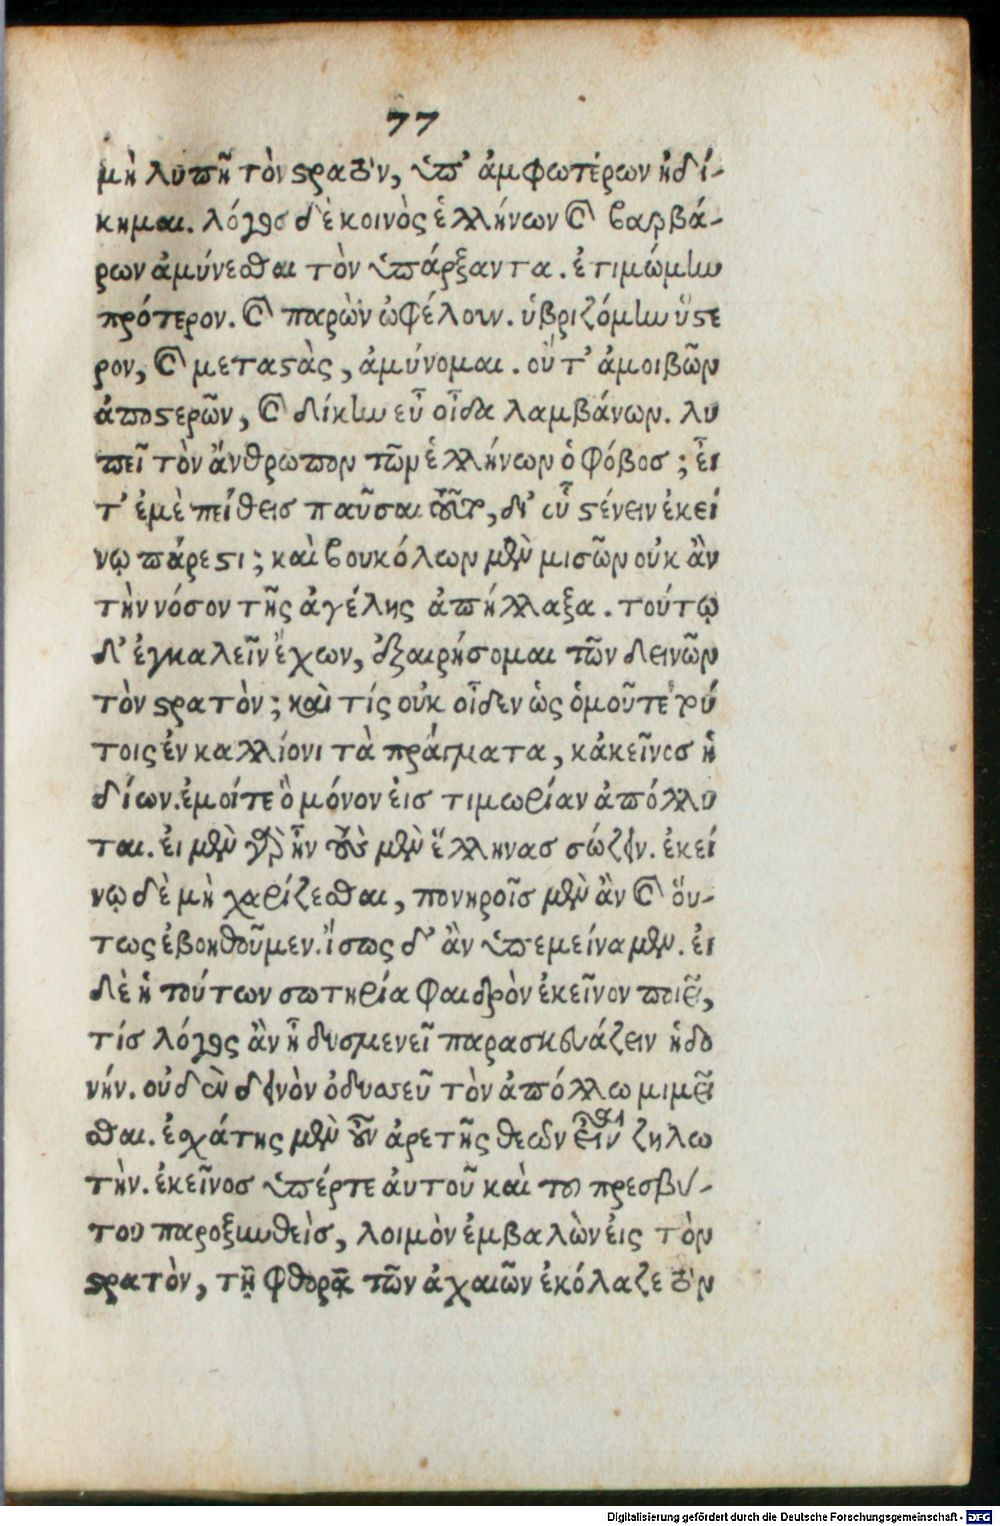 77
μὴ λυπῇ τὸν στρατὸν, ὑπ' ἀμφωτέρων ἠδί-
κημαι. λόγος δὲ κοινὸς ἑλλήνων καὶ βαρβά-
ρων ἀμύνεσθαι τὸν ὑπάρξαντα. ἐτιμώμην
πρότερον. καὶ παρὼν ὠφέλουν. ὑβριζόμην ὕστε
ρον, καὶ μεταστὰς, ἀμύνομαι. οὔτ' ἀμοιβῶν
ἀποστερῶν, καὶ δίκην εὖ οἶδα λαμβάνων. λυ
πεῖ τὸν ἄνθρωπον τῶν ἑλλήνων ὁ φόβος; εἶ
τ' ἐμὲ πείθεις παῦσαι τοῦτον, δι' οὗ στένειν ἐκεί
νῳ πάρεστι; καὶ βουκόλων μὲν μισῶν οὐκ ἂν
τὴν νόσον τῆς ἀγέλης ἀπήλλαξα. τούτῳ
δ' ἐγκαλεῖν ἔχων, ἐξαιρήσομαι τῶν δεινῶν
τὸν στρατὸν; καὶ τίς οὐκ οἶδεν ὡς ὁμοῦ τε τού
τοις ἐν καλλίονι τὰ πράγματα, κἀκεῖνος ἡ
δίων. ἐμοί τε ὃ μόνον εἰς τιμωρίαν ἀπόλλυ
ται. εἰ μὲν γὰρ ἦν τοὺς μὲν ἕλληνας σώζειν. ἐκεί
νῳ δὲ μὴ χαρίζεσθαι, πονηροῖς μὲν ἂν καὶ οὕ-
τως ἐβοηθοῦμεν. ἴσως δ' ἂν ὑπεμείναμεν. εἰ
δὲ ἡ τούτων σωτηρία φαιδρὸν ἐκεῖνον ποιεῖ,
τίς λόγος ἂν ᾖ δυσμενεῖ παρασκευάζειν ἡδο
νήν. οὐδὲν δεινὸν ὀδυσσεῦ τὸν ἀπόλλω μιμεῖ
σθαι. ἐσχάτης μὲν οὖν ἀρετῆς θεῶν ἐστιν ζηλω
τὴν. ἐκεῖνος ὑπέρ τε αὐτοῦ καὶ του πρεσβύ-
του παροξυνθεὶς, λοιμὸν ἐμβαλὼν εἰς τὸν
στρατὸν, τῇ φθορᾷ τῶν ἀχαιῶν ἐκόλαζε τὸν
Digitalisierung gefördert durch die Deutsche Forschungsgemeinschaft - DFG